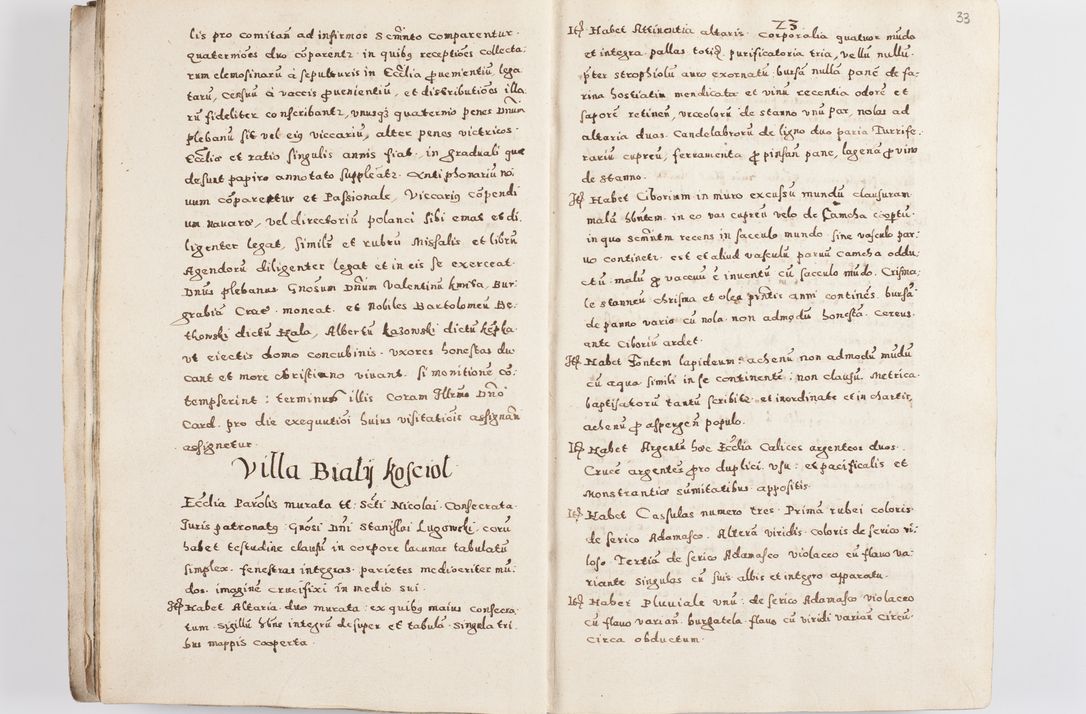 lis pro comitañ ad infirmos Scm̃nto comparentur.
quaterniões duo cõparent2 in quibꝯ receptiões collecta-
rum elemosinarũ à sepulturis in Ecc̃lia ꝓuementiũ, lega
tarũ, censuũ à vaccis ꝓuenientiũ, et distributiões illa-
rũ fideliter conscribant2, vnusqꝫ quaternio penes Dñum
plebanũ sit vel eiꝯ viccariũ, alter penes victricos.
Ecc̃liæ et ratio singulis annis fiat, in graduali quæ
desunt papiro annotato suppleãt2. Antiphonariũ no
uum cõparetur et Passionale, Viccariꝯ cõpendi
um Nauarr, vel directoriũ polanci sibi emat et di-
ligenter legat, Similr et rubrũ Missalis et librũ
Agendorũ diligenter legat et in eis se exerceat.
Dñus plebanus Gñosum Dñum Valentinũ kmita, Bur-
grabiũ Crac. moneat. et Nobiles Bartolomeũ Be-
thonski dictũ Kala, Albertũ kazonski dictũ kępka
vt eiectis domo concubinis. vxores honestas du
cant et more christiano viuant. Si monitione cõ-
tempserint: terminus illis coram Illr̃mo Dño
Card. pro die exequutiõi huius visitatiõis assignañ
assignetur.
Villa Biały kosciol.
Ecc̃lia Paroľis murata tť. Scti Nicolai. Consecrata.
Iuris patronatꝯ Gñosi Dñi Stanislai Lugowski. corũ
habet testudine clausũ in corpore lacunar tabulatũ
simplex. fenestras integras. parietes mediocriter mũ-
dos. imaginẽ crucifixi in medio sui.
Itꝫ Habet Altaria duo murata. ex quibꝯ maius consecra-
tum. sigillũ hñs integrũ desuper et tabulã. Singula tri
bus mappis cooperta.
23
33
Itꝫ Habet Attinentia altaris. Corporalia quatuor mũda
et integra. pallas totidꝫ purificatoria tria, vellũ nullũ.
p̃ter strophiolũ auro exornatũ. bursã nullã panẽ de fa-
rina hostiatim mendicata et vinũ recentia odorẽ et
saporẽ retineñ, vrceolorũ de stanno vnũ par, nolas ad
altaria duas. Candelabrorũ de ligno duo paria Turrife-
rariũ cupreũ, ferramenta ꝓ pinsañ pane, lagenã ꝓ vino
de stanno.
Itꝫ Habet Ciborium in muro excussũ mundũ clausuram
malã hñtem. in eo vas cupreũ velo de Camcha coop̃tũ.
in quo scm̃ntm recens in sacculo mundo. sine vasculo par-
uo contineti. est et aliud vasculũ paruũ camcha oddu
ctũ. malũ ꝙ vacuũ ẽ inuentũ cũ sacculo mũdo. Crisma-
le stanneũ chrisma et olea p̃ntis anni continẽs. bursã
de panno vario cũ nola. non admodũ honestã. Cereus
ante Ciboriũ ardet.
Itꝫ Habet Fontem lapideum: achenũ non admodũ mũdũ
cũ aqua simili in se continente: non clausũ. Metrica
baptisatorũ tantũ scribit2 et inordinate et in chartis.
achenũ ꝓ aspergeñ populo.
Itꝫ Habet Argentũ hæc Ecc̃lia Calices argenteos duos.
Crucẽ argenteã pro duplici. vsu: et pacificalis et
Monstrantiæ sũmitatibus appositis.
Itꝫ Habet Cassulas numero tres. Primã rubei coloris
de serico Adamasco. Alterã viridis. coloris de serico vi-
loso. Tertiã de serico Adamasco violaceo cũ flauo va-
riante singulas cũ suis albis et integro apparatu.
Itꝫ Habet Pluuiale vnũ. de serico Adamasco violaceo
cũ flauo variañ. burgatela. flauo cũ viridi variañ circũ
circa obductum.